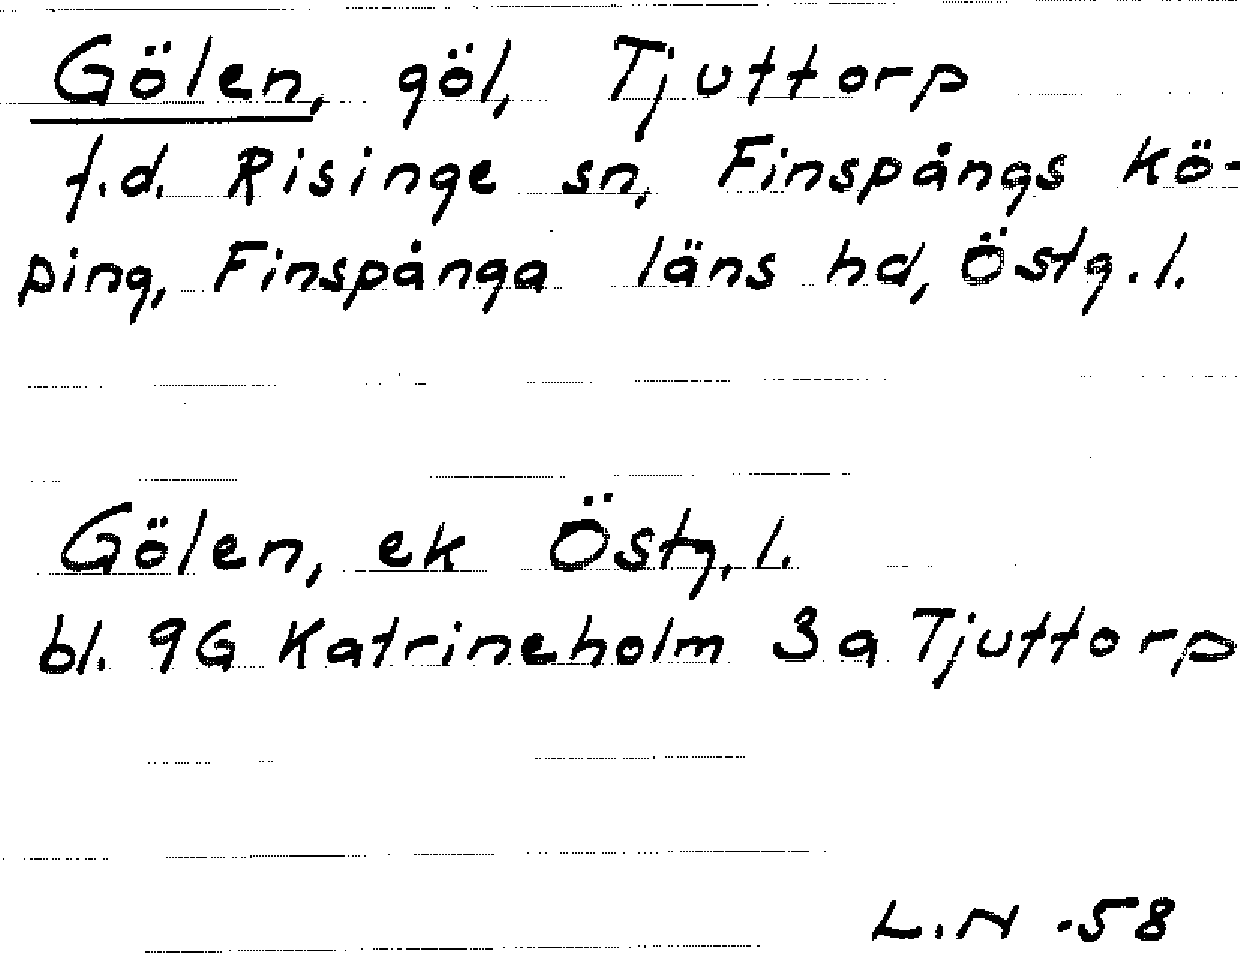 Gölen, göl, Tjuttorp
f.d. Risinge sn, Finspångs kö-
ping, Finspånga läns hd, Östg.l.
Gölen, ek Östg.l.
bl. 9G Katrineholm 3a Tjuttorp
L.N -58